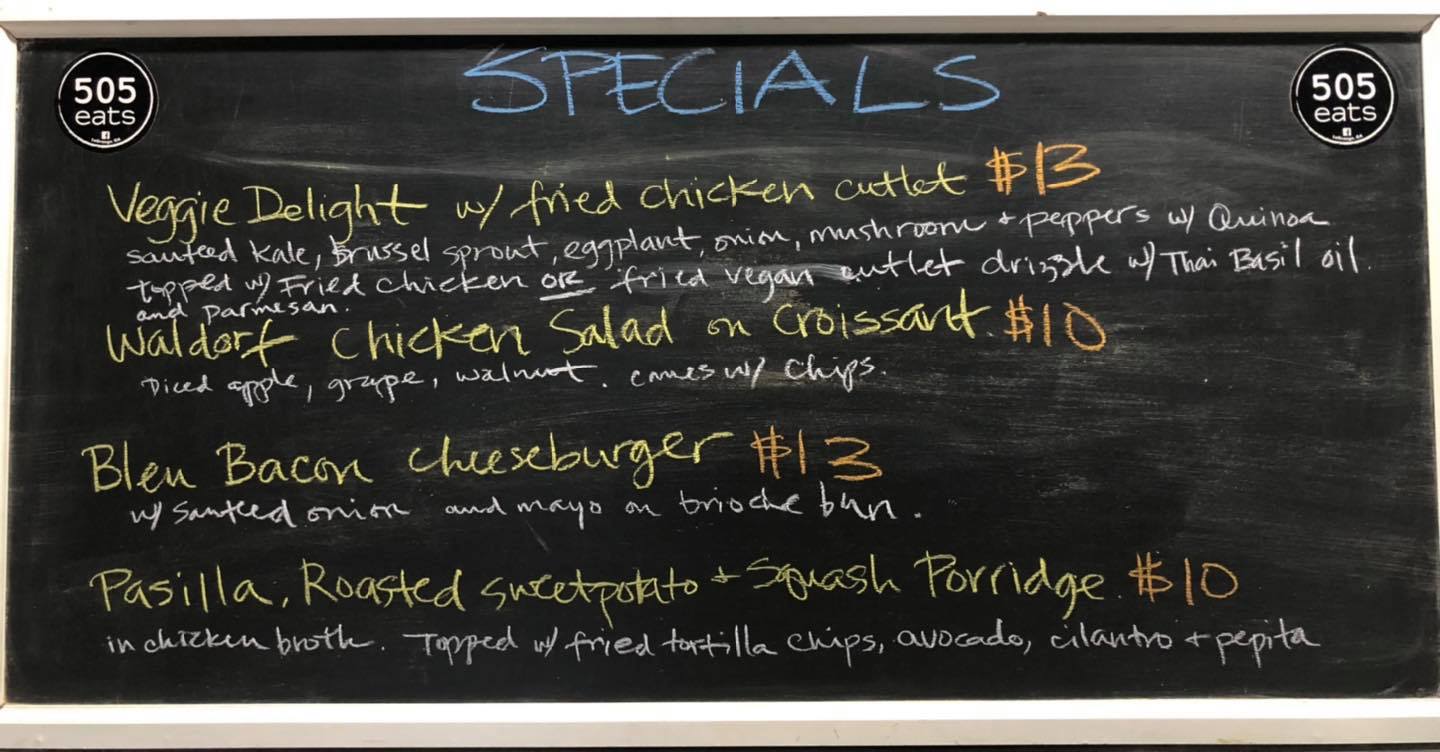 505
eats
SPECIALS
505
eats
Veggie Delight w/ fried chicken cutlet $13
sauteed kale, brussel sprout, eggplant, onion, mushroom + peppers w/ Quinoa
topped w/ Fried chicken OR fried vegan cutlet drizzle w/ Thai Basil oil.
and parmesan.
Waldorf Chicken Salad on Croissant. $10
Diced apple, grape, walnut. comes w/ chips.
Bleu Bacon cheeseburger $13
w/ sauteed onion and mayo on brioche bun.
Pasilla, Roasted sweetpotato + Squash Porridge. $10
in chicken broth. Topped w/ fried tortilla chips, avocado, cilantro + pepita